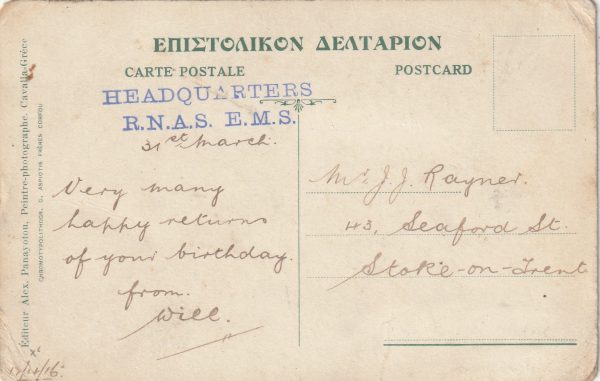 ΕΠΙΣΤΟΛΙΚΟΝ ΔΕΛΤΑΡΙΟΝ
CARTE POSTALE
POSTCARD
HEADQUARTERS
R.N.A.S. E.M.S.
31st March.
Very many
happy returns
of your birthday.
from.
Will.
Mr. J. J. Rayner.
43, Seaford St.
Stoke-on-Trent
Éditeur Alex. Panayotou, Peintre-photographe, Cavalla-Grèce
CHROMOTYPOLITHOGR. G. ASPIOTIS FRÈRES CORFOU